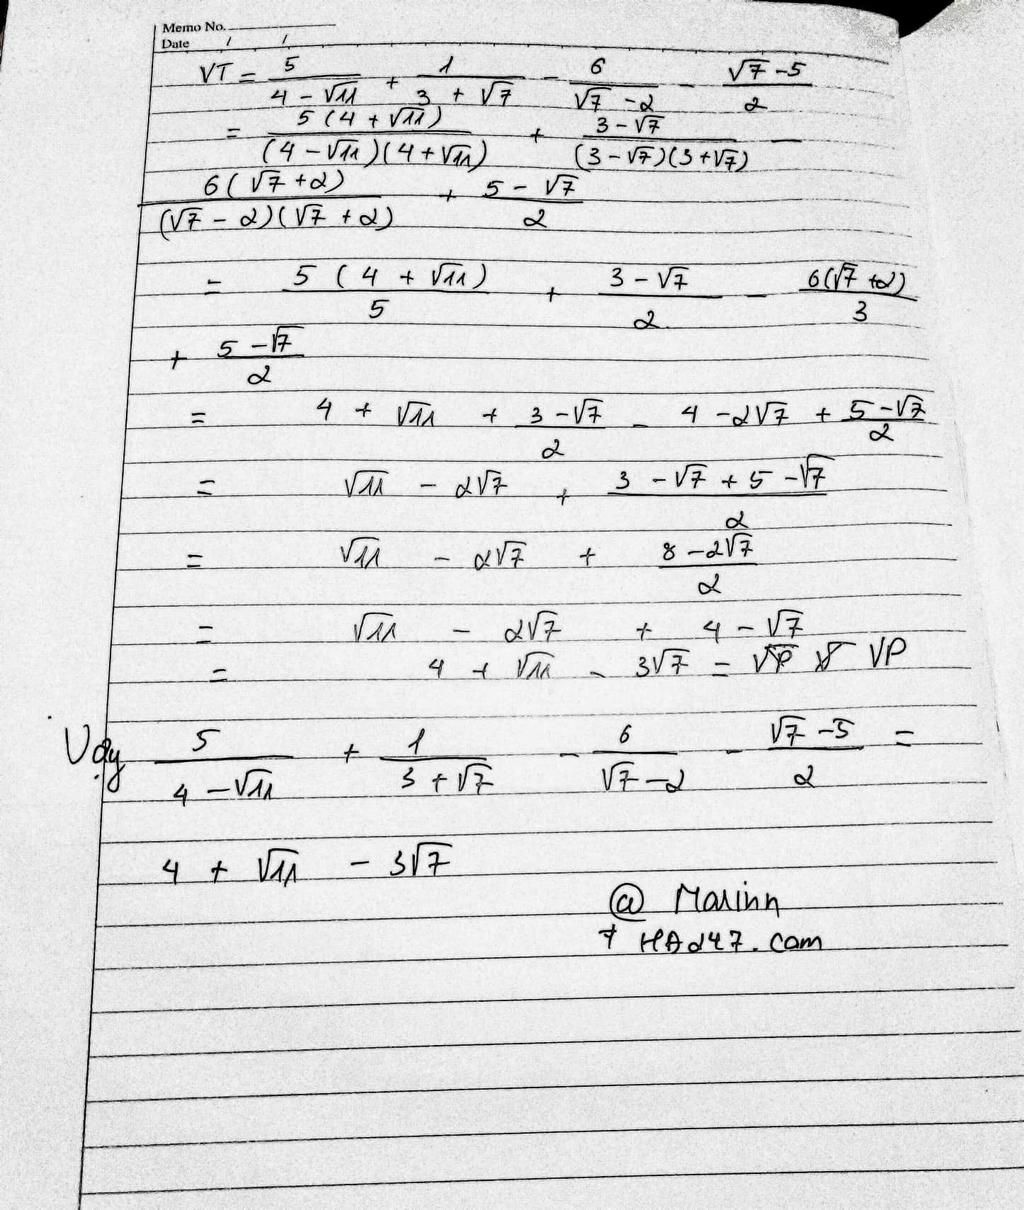 Memo No.
Date / /
VT = 5/(4 - √11) + 1/(3 + √7) - 6/(√7 - 2) - (√7 - 5)/2
= 5(4 + √11)/((4 - √11)(4 + √11)) + (3 - √7)/((3 - √7)(3 + √7)) -
6(√7 + 2)/((√7 - 2)(√7 + 2)) + (5 - √7)/2
= 5(4 + √11)/5 + (3 - √7)/2 - 6(√7 + 2)/3
+ (5 - √7)/2
= 4 + √11 + (3 - √7)/2 - 4 - 2√7 + (5 - √7)/2
= √11 - 2√7 + (3 - √7 + 5 - √7)/2
= √11 - 2√7 + (8 - 2√7)/2
= √11 - 2√7 + 4 - √7
= 4 + √11 - 3√7 = VP
Vậy 5/(4 - √11) + 1/(3 + √7) - 6/(√7 - 2) - (√7 - 5)/2 =
4 + √11 - 3√7
@ Marinn
+ HAd247.com